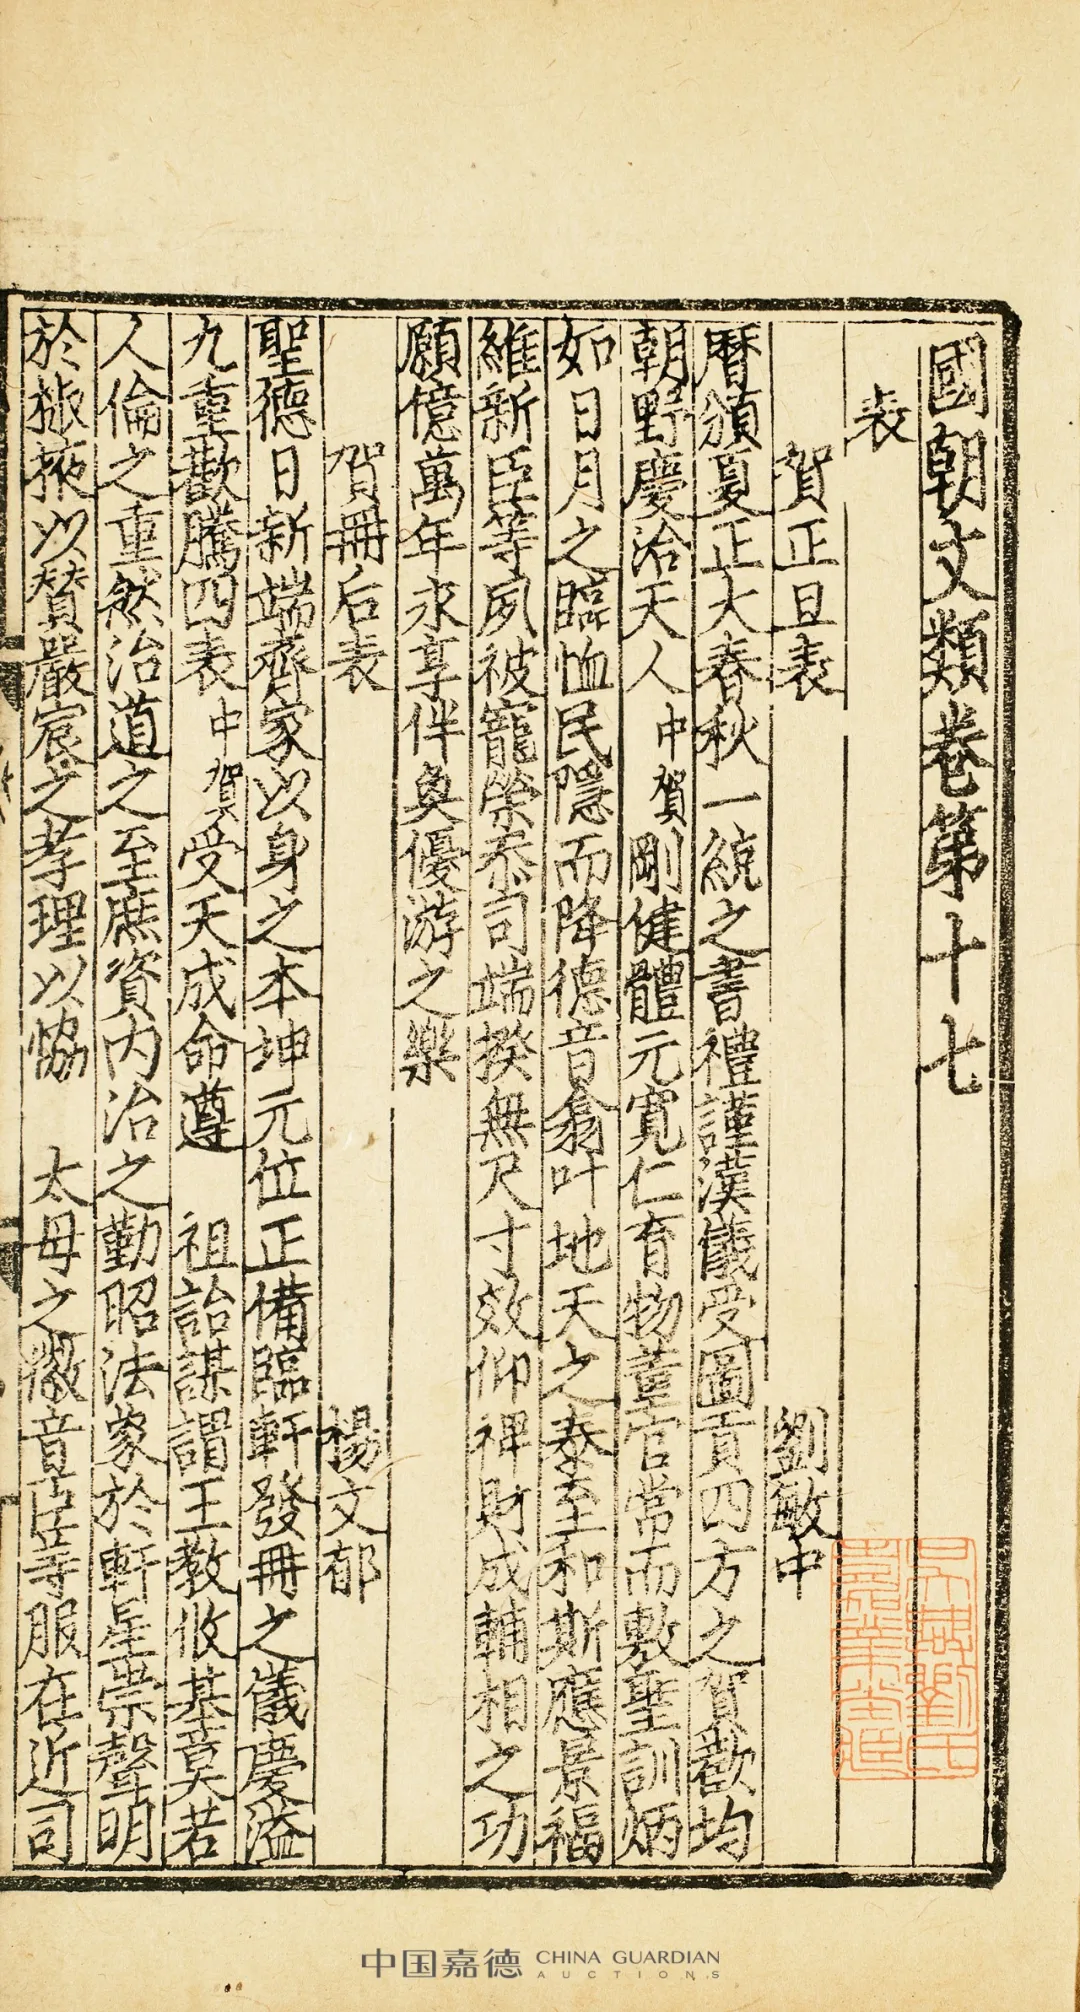 國朝文類卷第十七
表
賀正旦表 劉敏中
曆頒夏正大春秋一統之書禮謹漢儀受圖貢四方之賀歡均
朝野慶洽天人中賀剛健體元寬仁育物董官常而敷聖訓炳
如日月之臨恤民隱而降德音翕叶地天之泰至和斯應景福
維新臣等夙被寵榮忝司端揆無尺寸效仰裨財成輔相之功
願億萬年永享伴奐優游之樂
賀冊后表 楊文郁
聖德日新端齊家以身之本坤元位正備臨軒發冊之儀慶溢
九重歡騰四表中賀受天成命遵 祖詒謀謂王教攸基莫若
人倫之重然治道之至庶資内治之勤昭法象於軒星崇聲明
於掖以贊嚴宸之孝理以恊 太母之徽音臣等服在近司
吳興劉氏
嘉業堂
中国嘉德 CHINA GUARDIAN
AUCTIONS